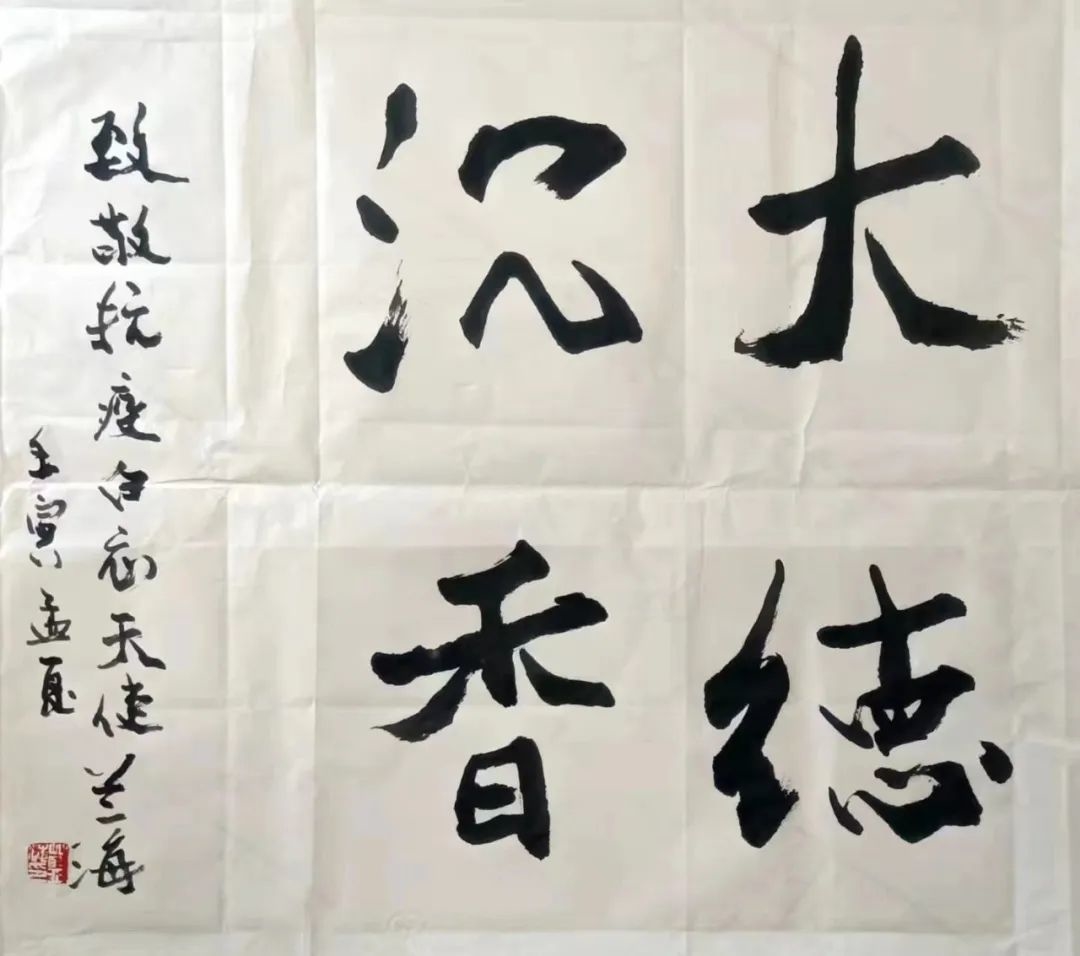 大德
沉香
致敬抗疫白衣天使兰海
壬寅孟夏